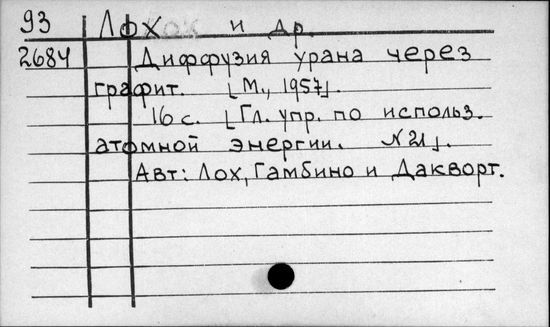 93 Лох и др.
2684 Диффузия урана через
графит. [М., 1957].
16 с. [Гл. упр. по использ.
атомной энергии. N 21].
Авт: Лох, Гамбино и Дакворт.